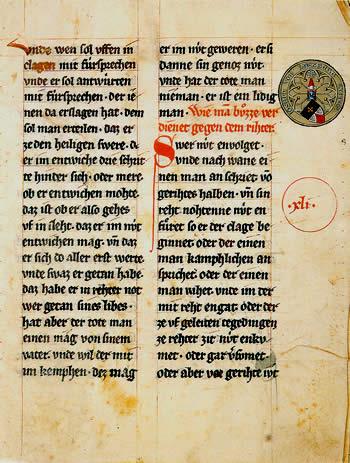 Unde wen sol uffen in
clagen mit fursprechen
unde er sol antwurten
mit fursprechen. der ie
nen da erslagen hat. dem
sol man erteilen. daz er
ze den heiligen swere. dc
er im entwiche drie schrit
te hinder sich. oder mere.
ob er entwichen mohte.
daz ist ob er also gehes
uf in sleht. daz er im nvt
entwichen mag. vn daz
er sich do aller erst werte.
unde swaz er getan habe.
daz habe er in rehter not
wer getan sines libes.
hat aber der tote man
einen mag von sinem
vater. unde wil der mit
im kemphen. dez mag
er im nvt geweren. er si
danne sin genoz nvt.
unde hat der tote man
nieman. er ist ein lidig
man. Wie ma bvzze ver
dienet gegen dem rihter.
Swer nvt envolget.
unde nach wane ei
nen man an schriet vo
gerihtes halben. vn sin
reht nohtenne nvt en
furet so er der clage be
ginnet. oder der einen
man kamphlichen an
sprichet. oder der einen
man wihet. unde im der
mit reht engat. oder der
ze vf geleiten tegedingen
ze rehter zit nvt enku
met. oder gar vsomet.
oder aber vor gerihte nvt
·xli·